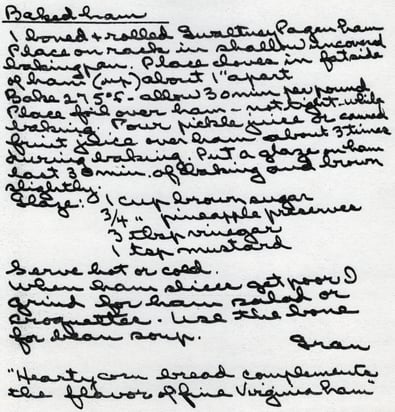 Baked ham
1 boned + rolled Gwaltney Pagen ham
Place on rack in shallow uncovered
baking pan. Place cloves in fatside
of ham (up) about 1" apart
Bake 275°F - allow 30 min per pound
Place foil over ham - not tight - while
baking. Pour pickle juice or canned
fruit juice over ham about 3 times
during baking. Put a glaze on ham
last 30 min. of baking and brown
slightly.
Glaze: 1 cup brown sugar
3/4 " pineapple preserves
3 tbsp vinegar
1 tsp mustard
Serve hot or cold.
When ham slices get poor I
grind for ham salad or
croquettes. Use the bone
for bean soup.
Gran
"Hearty corn bread complements
the flavor of fine Virginia ham"